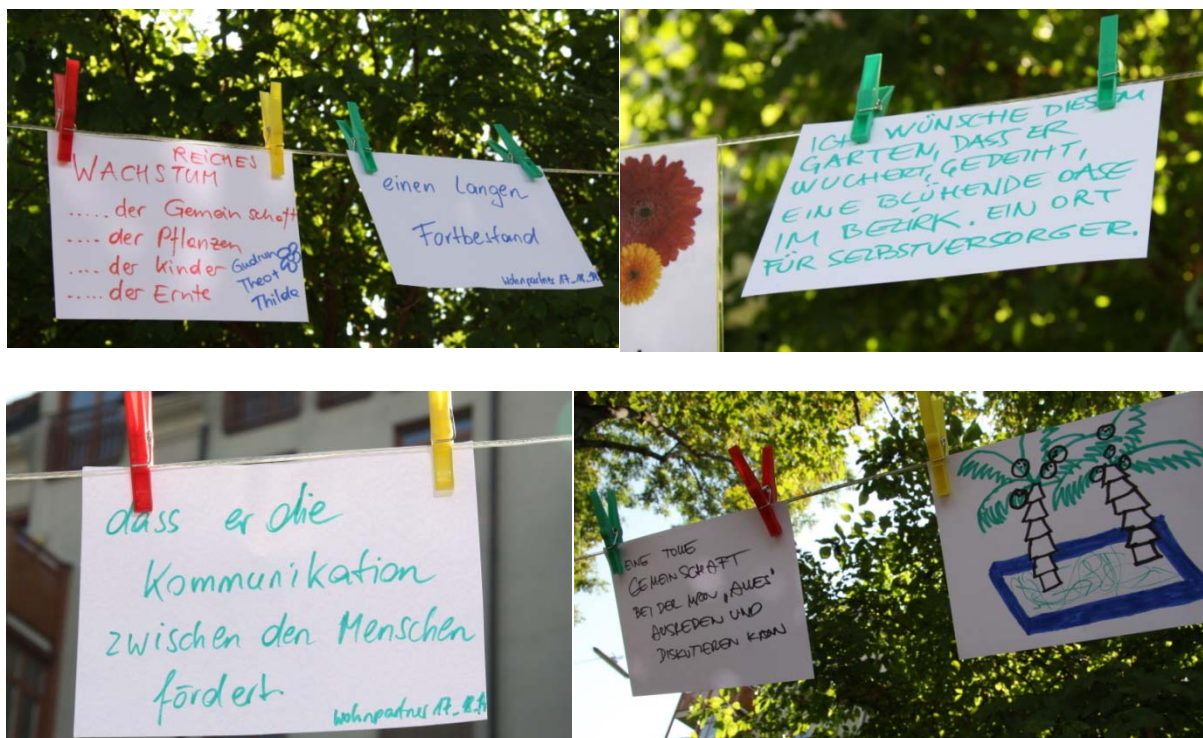 REICHES
WACHSTUM
..... der Gemeinschaft
.... der Pflanzen
.... der Kinder
..... der Ernte
Gudrun
Theo+
Thilda
einen Langen
Fortbestand
wohnpartner 17_
ICH WÜNSCHE DIESEM
GARTEN, DASS ER
WUCHERT, GEDEIHT,
EINE BLÜHENDE OASE
IM BEZIRK. EIN ORT
FÜR SELBSTVERSORGER.
dass er die
Kommunikation
zwischen den Menschen
fördert
wohnpartner 17_
EINE TOLLE
GEMEINSCHAFT
BEI DER MAN „ALLES"
AUSREDEN UND
DISKUTIEREN KANN